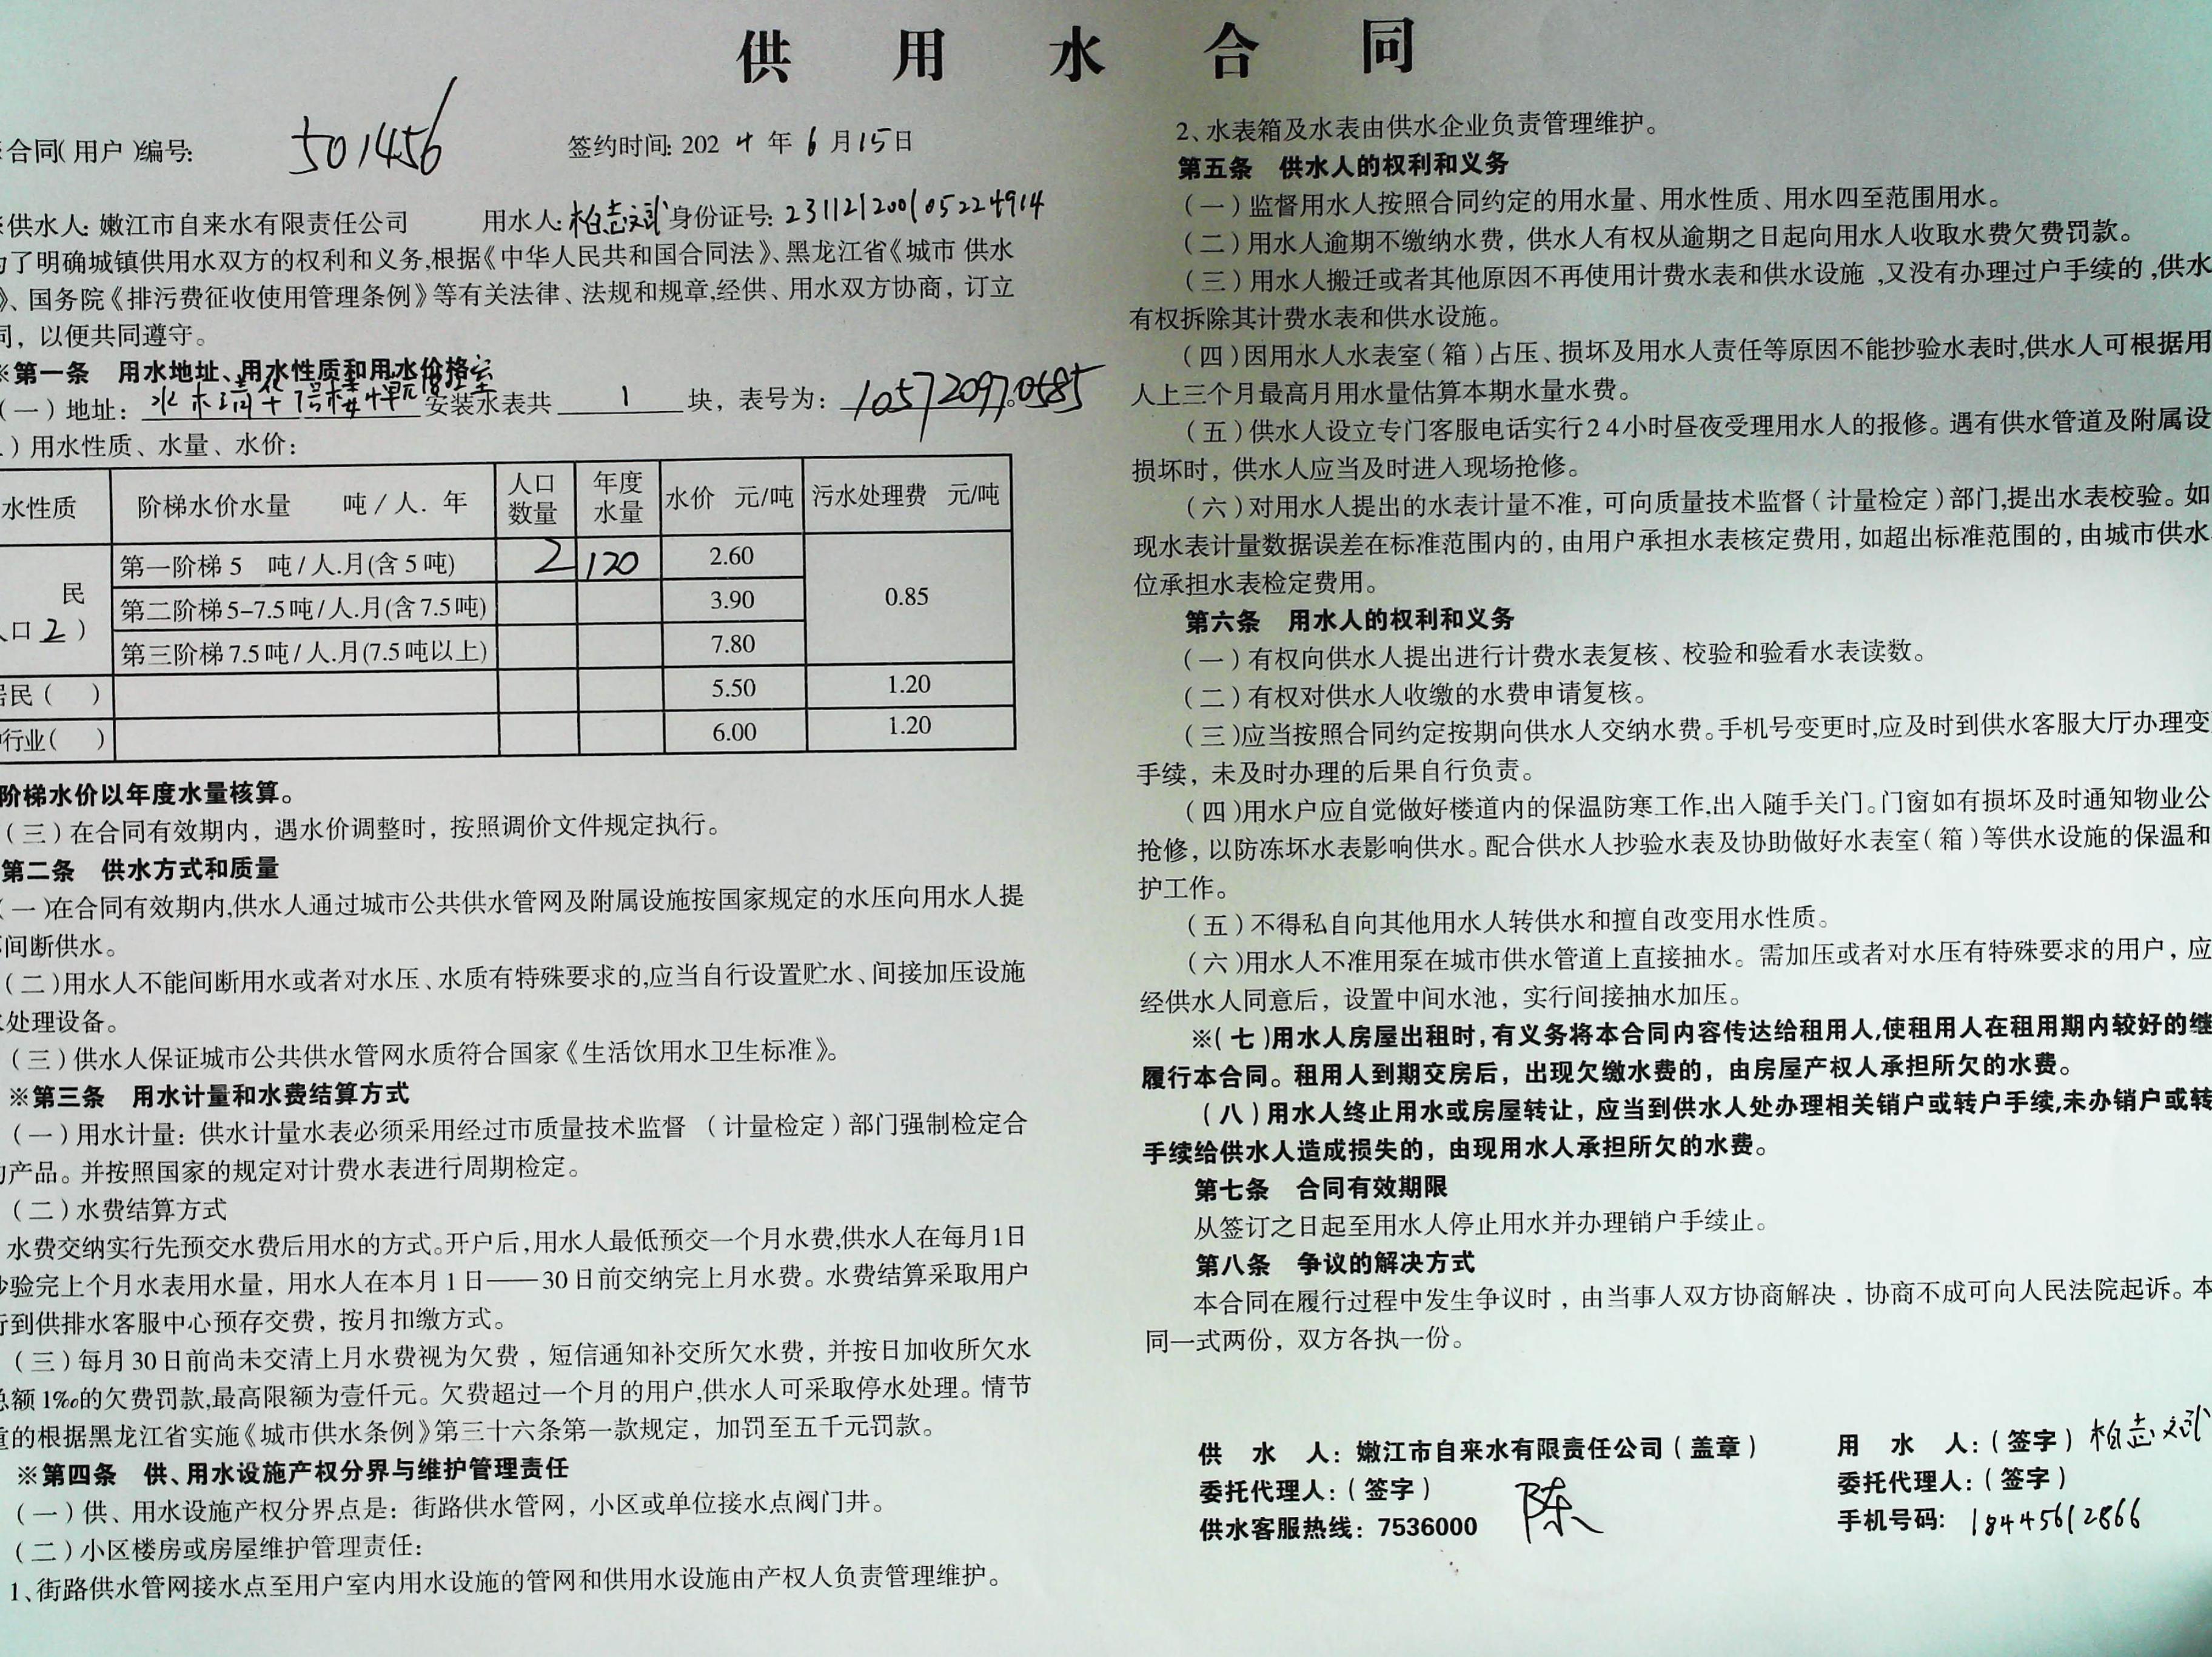 供 用 水 合 同
合同(用户)编号: 501456 签约时间: 2024 年 6 月 15 日
※供水人: 嫩江市自来水有限责任公司 用水人: 柏志斌 身份证号: 231121200105224914
为了明确城镇供用水双方的权利和义务,根据《中华人民共和国合同法》、黑龙江省《城市 供水
》、国务院《排污费征收使用管理条例》等有关法律、法规和规章,经供、用水双方协商，订立
同，以便共同遵守。
※第一条 用水地址、用水性质和用水价格
(一)地址: 水木清华 号楼 单元 室 安装水表共 1 块，表号为: 105720970585
)用水性质、水量、水价:
水性质 阶梯水价水量 吨/人.年 人口数量 年度水量 水价 元/吨 污水处理费 元/吨
民 人口 2 ) 第一阶梯 5 吨/人.月(含 5 吨) 2 120 2.60 0.85
第二阶梯 5-7.5 吨/人.月(含 7.5 吨) 3.90
第三阶梯 7.5 吨/人.月(7.5 吨以上) 7.80
居民( ) 5.50 1.20
行业( ) 6.00 1.20
阶梯水价以年度水量核算。
(三)在合同有效期内，遇水价调整时，按照调价文件规定执行。
第二条 供水方式和质量
(一)在合同有效期内,供水人通过城市公共供水管网及附属设施按国家规定的水压向用水人提
间断供水。
(二)用水人不能间断用水或者对水压、水质有特殊要求的,应当自行设置贮水、间接加压设施
处理设备。
(三)供水人保证城市公共供水管网水质符合国家《生活饮用水卫生标准》。
※第三条 用水计量和水费结算方式
(一)用水计量：供水计量水表必须采用经过市质量技术监督 (计量检定)部门强制检定合
的产品。并按照国家的规定对计费水表进行周期检定。
(二)水费结算方式
水费交纳实行先预交水费后用水的方式。开户后,用水人最低预交一个月水费,供水人在每月1日
抄验完上个月水表用水量，用水人在本月 1 日——30 日前交纳完上月水费。水费结算采取用户
行到供排水客服中心预存交费，按月扣缴方式。
(三)每月 30 日前尚未交清上月水费视为欠费，短信通知补交所欠水费，并按日加收所欠水
总额 1‰的欠费罚款,最高限额为壹仟元。欠费超过一个月的用户,供水人可采取停水处理。情节
重的根据黑龙江省实施《城市供水条例》第三十六条第一款规定，加罚至五千元罚款。
※第四条 供、用水设施产权分界与维护管理责任
(一)供、用水设施产权分界点是：街路供水管网，小区或单位接水点阀门井。
(二)小区楼房或房屋维护管理责任:
1、街路供水管网接水点至用户室内用水设施的管网和供用水设施由产权人负责管理维护。
2、水表箱及水表由供水企业负责管理维护。
第五条 供水人的权利和义务
(一)监督用水人按照合同约定的用水量、用水性质、用水四至范围用水。
(二)用水人逾期不缴纳水费，供水人有权从逾期之日起向用水人收取水费欠费罚款。
(三)用水人搬迁或者其他原因不再使用计费水表和供水设施,又没有办理过户手续的,供水
有权拆除其计费水表和供水设施。
(四)因用水人水表室(箱)占压、损坏及用水人责任等原因不能抄验水表时,供水人可根据用
人上三个月最高月用水量估算本期水量水费。
(五)供水人设立专门客服电话实行24小时昼夜受理用水人的报修。遇有供水管道及附属设
损坏时，供水人应当及时进入现场抢修。
(六)对用水人提出的水表计量不准，可向质量技术监督(计量检定)部门,提出水表校验。如
现水表计量数据误差在标准范围内的，由用户承担水表核定费用，如超出标准范围的，由城市供水
位承担水表检定费用。
第六条 用水人的权利和义务
(一)有权向供水人提出进行计费水表复核、校验和验看水表读数。
(二)有权对供水人收缴的水费申请复核。
(三)应当按照合同约定按期向供水人交纳水费。手机号变更时,应及时到供水客服大厅办理变
手续，未及时办理的后果自行负责。
(四)用水户应自觉做好楼道内的保温防寒工作,出入随手关门。门窗如有损坏及时通知物业公
抢修，以防冻坏水表影响供水。配合供水人抄验水表及协助做好水表室(箱)等供水设施的保温和
护工作。
(五)不得私自向其他用水人转供水和擅自改变用水性质。
(六)用水人不准用泵在城市供水管道上直接抽水。需加压或者对水压有特殊要求的用户，应
经供水人同意后，设置中间水池，实行间接抽水加压。
※(七)用水人房屋出租时,有义务将本合同内容传达给租用人,使租用人在租用期内较好的继
履行本合同。租用人到期交房后，出现欠缴水费的，由房屋产权人承担所欠的水费。
(八)用水人终止用水或房屋转让，应当到供水人处办理相关销户或转户手续,未办销户或转
手续给供水人造成损失的，由现用水人承担所欠的水费。
第七条 合同有效期限
从签订之日起至用水人停止用水并办理销户手续止。
第八条 争议的解决方式
本合同在履行过程中发生争议时，由当事人双方协商解决，协商不成可向人民法院起诉。本
同一式两份，双方各执一份。
供 水 人：嫩江市自来水有限责任公司(盖章) 用 水 人:(签字) 柏志斌
委托代理人:(签字) 陈 委托代理人:(签字)
供水客服热线：7536000 手机号码: 18445612866